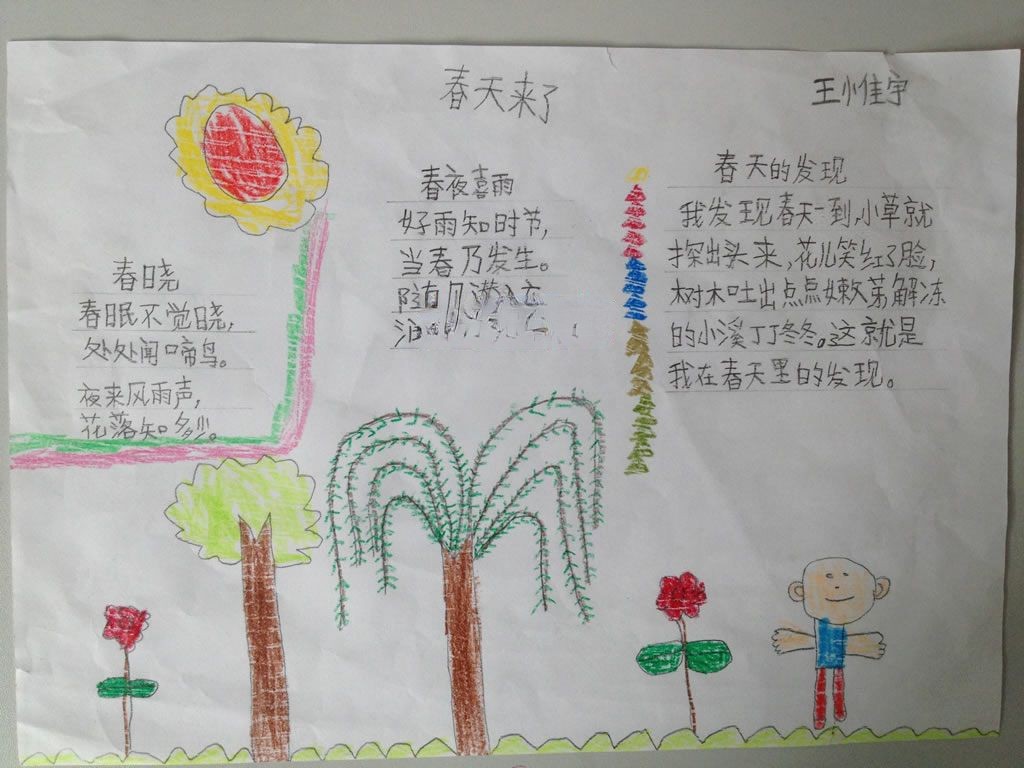 春天来了
王小佳宇
春晓
春眠不觉晓,
处处闻啼鸟。
夜来风雨声,
花落知多少。
春夜喜雨
好雨知时节,
当春乃发生。
随
春天的发现
我发现春天一到,小草就
探出头来,花儿笑红了脸,
树木吐出点点嫩芽解冻
的小溪丁丁冬冬。这就是
我在春天里的发现。